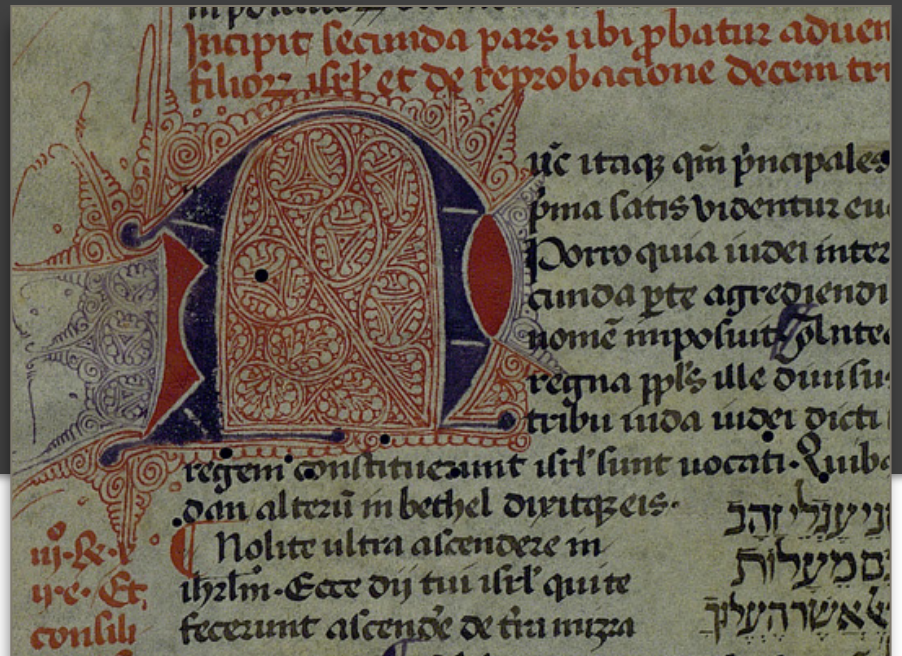 Incipit secunda pars ubi ꝓbatur aduen
filioꝝ isrl̕ et de reprobacione decem tri
Nūc itaqꝫ qm̄ p̃ncipales
p̃ma satis videntur eu
Porro quia iudei inter
cunda ꝑte agrediendi
nomē imposuit Ante
regna ppl̕s ille diuisu
tribu iuda iudei dicti
regem constituerunt isrl̕ sunt uocati. Quib
dan alterū in bethel dixitqꝫ eis.
ני עגלי זהב
¶ Nolite ultra ascendere in
iij. Re.
ihrlm̄. Ecce dij tui isrl̕ qui te
ם מעלות
Et
fecerunt ascendẽ de tr̃a mizra
ל אשר העלוך
consili